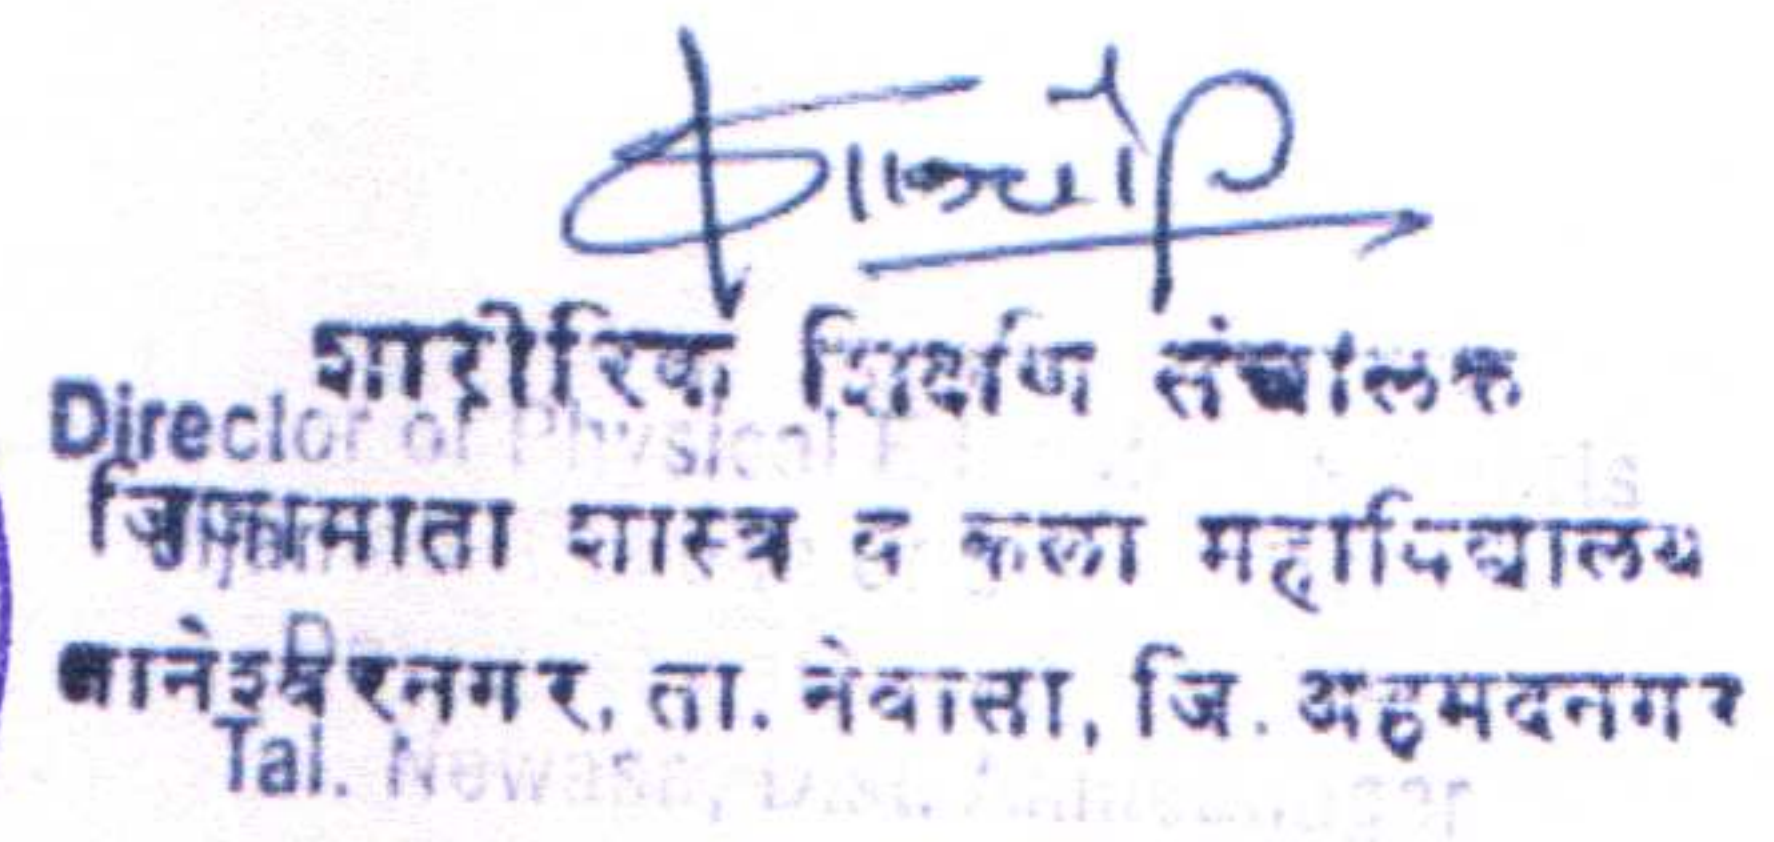 शारीरिक शिक्षण संचालक
Director of Physical
जिजामाता शास्त्र व कला महाविद्यालय
ज्ञानेश्वरनगर, ता. नेवासा, जि. अहमदनगर
Tal. Newasa, Dist. Ahmednagar